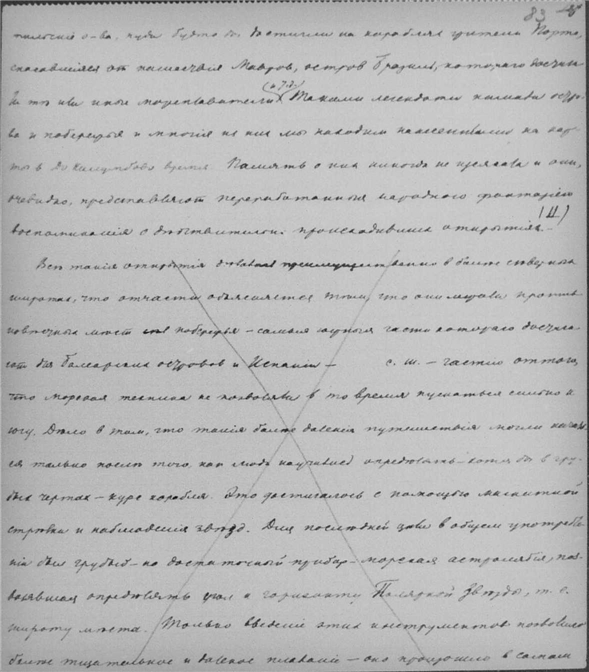 83
о-ва, куда будто бы достигли на кораблях жители Порто,
спасавшіеся от нашествія Мавров, остров Бразиль, которого достигли
и т. д.
те или иные мореплаватели. Такими легендами
и побережья и многія из них мы находим нанесенными на кар-
ты в до Колумбово время. Память о них никогда не изсякала и они,
очевидно, представляют переработанныя народной фантазіей
воспоминанія о действительно происходивших открытіях.
Все такія открытія преимущественно в более северных
широтах, что отчасти объясняется тем, что они лежали против
мест побережья – самыя южныя части которого
от Балеарских островов и Испаніи – с. ш. – частью оттого,
что морская техника не позволяла в то время пускаться сильно к
югу. Дело в том, что такія более далекія путешествія могли
ся только после того, как люди научились определять – хотя бы в гру-
бых чертах – курс корабля. Это достигалось с помощью магнитной
стрелки и наблюденія звезд. Для последней цели в общем употребле-
ніи был грубый – но достаточный прибор – морская астролябія, поз-
волявшая определять угол к горизонту Полярной Звезды, т. е.
широту места. Только введеніе этих инструментов позволило
более тщательное и далекое плаваніе – оно произошло в самом